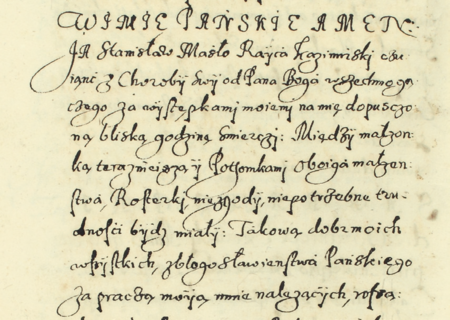 W IMIE PAŃSKIE AMEN:
JA Stanisław Masło Rayca Kazimirski czu:
iąnć z Choroby swy od Pana Boga wszechmogą:
cżego za występkami moiemi na mię dopuszczo:
ną, bliską godzinę śmierczi: Między małzon:
ką teraznieiszą y Potomkami oboiga małzen:
stwa, Rosterki, niezgody, niepotrzebne tru:
dnosci bydz miały: Takową dobr moich
wszystkich, z błogosławienstwa Pańskiego
za praczą moyią, mnie nalezących, rospo: